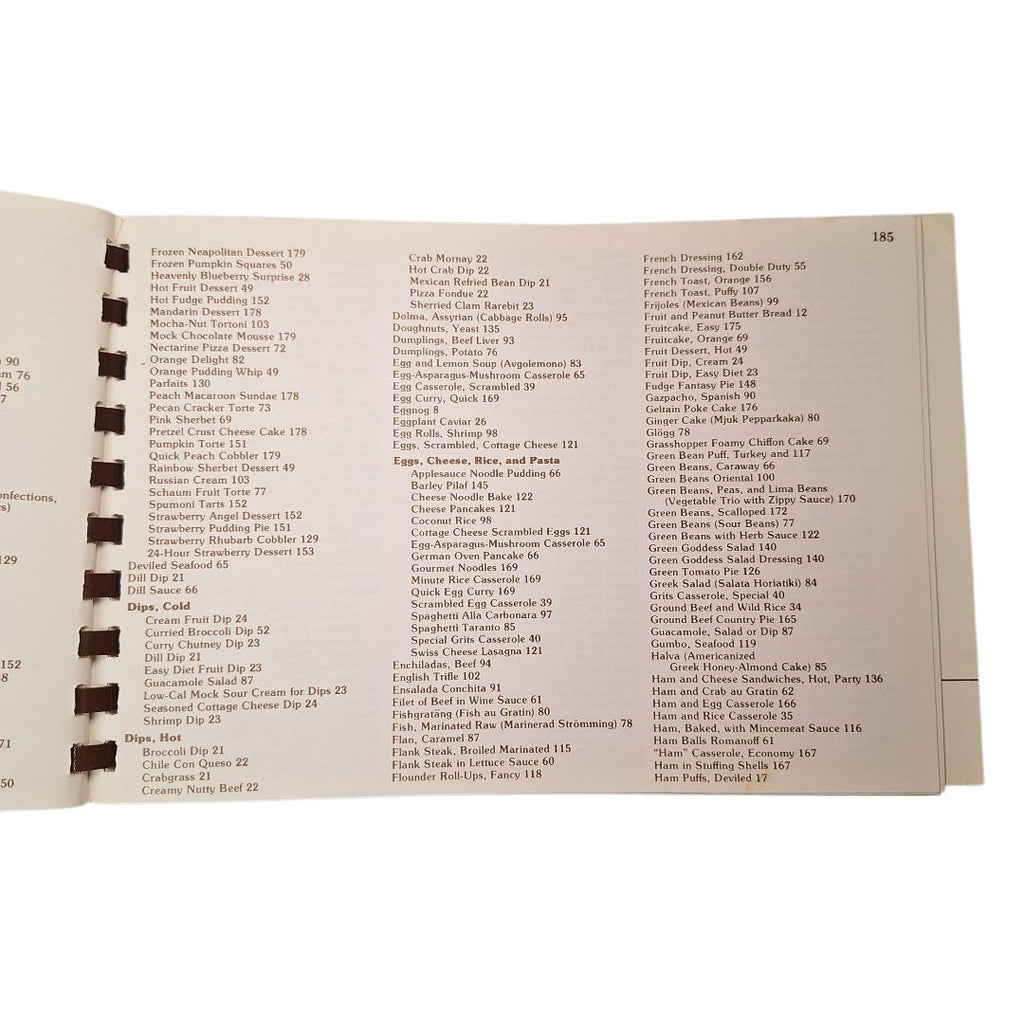 90
76
56
7
onfections,
s)
129
152
8
71
50
185
Frozen Neapolitan Dessert 179
Frozen Pumpkin Squares 50
Heavenly Blueberry Surprise 28
Hot Fruit Dessert 49
Hot Fudge Pudding 152
Mandarin Dessert 178
Mocha-Nut Tortoni 103
Mock Chocolate Mousse 179
Nectarine Pizza Dessert 72
Orange Delight 82
Orange Pudding Whip 49
Parfaits 130
Peach Macaroon Sundae 178
Pecan Cracker Torte 73
Pink Sherbet 69
Pretzel Crust Cheese Cake 178
Pumpkin Torte 151
Quick Peach Cobbler 179
Rainbow Sherbet Dessert 49
Russian Cream 103
Schaum Fruit Torte 77
Spumoni Tarts 152
Strawberry Angel Dessert 152
Strawberry Pudding Pie 151
Strawberry Rhubarb Cobbler 129
24-Hour Strawberry Dessert 153
Deviled Seafood 65
Dill Dip 21
Dill Sauce 66
Dips, Cold
Cream Fruit Dip 24
Curried Broccoli Dip 52
Curry Chutney Dip 23
Dill Dip 21
Easy Diet Fruit Dip 23
Guacamole Salad 87
Low-Cal Mock Sour Cream for Dips 23
Seasoned Cottage Cheese Dip 24
Shrimp Dip 23
Dips, Hot
Broccoli Dip 21
Chile Con Queso 22
Crabgrass 21
Creamy Nutty Beef 22
Crab Mornay 22
Hot Crab Dip 22
Mexican Refried Bean Dip 21
Pizza Fondue 22
Sherried Clam Rarebit 23
Dolma, Assyrian (Cabbage Rolls) 95
Doughnuts, Yeast 135
Dumplings, Beef Liver 93
Dumplings, Potato 76
Egg and Lemon Soup (Avgolemono) 83
Egg-Asparagus-Mushroom Casserole 65
Egg Casserole, Scrambled 39
Egg Curry, Quick 169
Eggnog 8
Eggplant Caviar 26
Egg Rolls, Shrimp 98
Eggs, Scrambled, Cottage Cheese 121
Eggs, Cheese, Rice, and Pasta
Applesauce Noodle Pudding 66
Barley Pilaf 145
Cheese Noodle Bake 122
Cheese Pancakes 121
Coconut Rice 98
Cottage Cheese Scrambled Eggs 121
Egg-Asparagus-Mushroom Casserole 65
German Oven Pancake 66
Gourmet Noodles 169
Minute Rice Casserole 169
Quick Egg Curry 169
Scrambled Egg Casserole 39
Spaghetti Alla Carbonara 97
Spaghetti Taranto 85
Special Grits Casserole 40
Swiss Cheese Lasagna 121
Enchiladas, Beef 94
English Trifle 102
Ensalada Conchita 91
Filet of Beef in Wine Sauce 61
Fishgratäng (Fish au Gratin) 80
Fish, Marinated Raw (Marinerad Strömming) 78
Flan, Caramel 87
Flank Steak, Broiled Marinated 115
Flank Steak in Lettuce Sauce 60
Flounder Roll-Ups, Fancy 118
French Dressing 162
French Dressing, Double Duty 55
French Toast, Orange 156
French Toast, Puffy 107
Frijoles (Mexican Beans) 99
Fruit and Peanut Butter Bread 12
Fruitcake, Easy 175
Fruitcake, Orange 69
Fruit Dessert, Hot 49
Fruit Dip, Cream 24
Fruit Dip, Easy Diet 23
Fudge Fantasy Pie 148
Gazpacho, Spanish 90
Geltain Poke Cake 176
Ginger Cake (Mjuk Pepparkaka) 80
Glögg 78
Grasshopper Foamy Chiffon Cake 69
Green Bean Puff, Turkey and 117
Green Beans, Caraway 66
Green Beans Oriental 100
Green Beans, Peas, and Lima Beans
(Vegetable Trio with Zippy Sauce) 170
Green Beans, Scalloped 172
Green Beans (Sour Beans) 77
Green Beans with Herb Sauce 122
Green Goddess Salad 140
Green Goddess Salad Dressing 140
Green Tomato Pie 126
Greek Salad (Salata Horiatiki) 84
Grits Casserole, Special 40
Ground Beef and Wild Rice 34
Ground Beef Country Pie 165
Guacamole, Salad or Dip 87
Gumbo, Seafood 119
Halva (Americanized
Greek Honey-Almond Cake) 85
Ham and Cheese Sandwiches, Hot, Party 136
Ham and Crab au Gratin 62
Ham and Egg Casserole 166
Ham and Rice Casserole 35
Ham, Baked, with Mincemeat Sauce 116
Ham Balls Romanoff 61
"Ham" Casserole, Economy 167
Ham in Stuffing Shells 167
Ham Puffs, Deviled 17